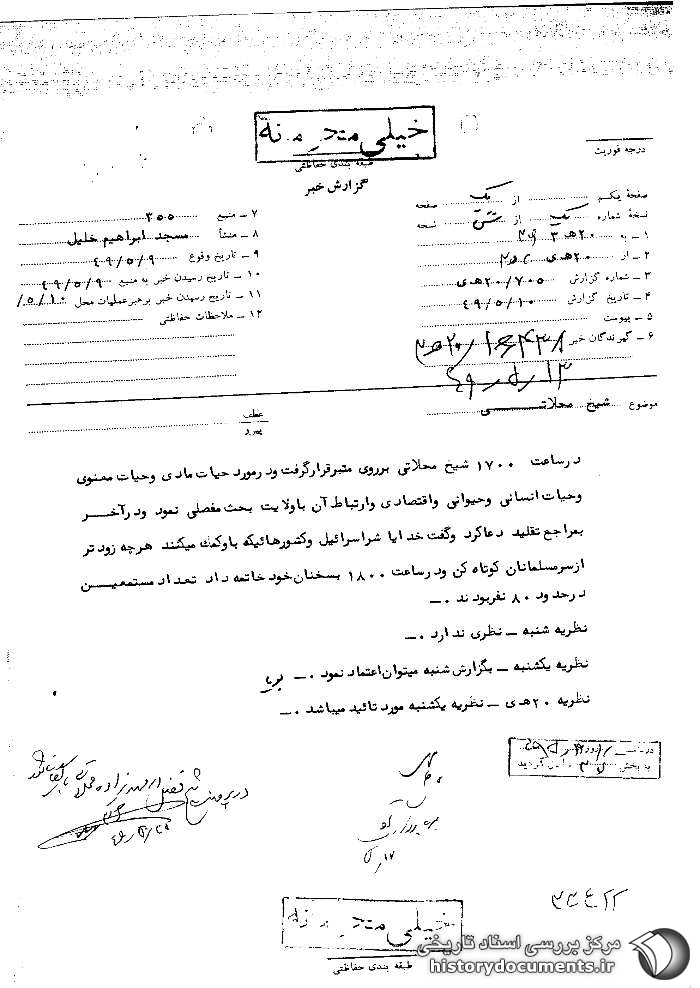 خیلی محرمانه
طبقه بندی حفاظتی
گزارش خبر
درجه فوریت
صفحهٔ یکم از یک صفحه
نسخهٔ شماره یک از شش نسخه
۱ ـ به ۲۰هـ ۳
۲ ـ از ۲۰هـ ی
۳ ـ شماره گزارش ۲۰/۷۰۵هـ ی
۴ ـ تاریخ گزارش ۴۹/۵/۱۰
۵ ـ پیوست
۶ ـ گیرندگان خبر
۷ ـ منبع ۳۵۵
۸ ـ منشأ مسجد ابراهیم خلیل
۹ ـ تاریخ وقوع ۴۹/۵/۹
۱۰ ـ تاریخ رسیدن خبر به منبع ۴۹/۵/۹
۱۱ ـ تاریخ رسیدن خبر برهبر عملیات محل /۵/۱۰
۱۲ ـ ملاحظات حفاظتی
موضوع شیخ محلاتی
عطف
پیرو
درساعت ۱۷۰۰ شیخ محلاتی برروی منبرقرارگرفت ودرمورد حیات مادی وحیات معنوی
وحیات انسانی وحیوانی واقتصادی وارتباط آن باولایت بحث مفصلی نمود ودرآخر
بمراجع تقلید دعاکرد وگفت خدایا شراسرائیل وکشورهائیکه باوکمک میکنند هرچه زودتر
ازسرمسلمانان کوتاه کن ودرساعت ۱۸۰۰ بسخنان خود خاتمه داد تعداد مستمعین
درحدود ۸۰ نفربودند ۰ـ
نظریه شنبه ـ نظری ندارد ۰ـ
نظریه یکشنبه ـ بگزارش شنبه میتوان اعتماد نمود ۰ـ
نظریه ۲۰هـ ی ـ نظریه یکشنبه مورد تائید میباشد ۰ـ
به بخش
خیلی محرمانه
طبقه بندی حفاظتی
مرکز بررسی اسناد تاریخی
historydocuments.ir